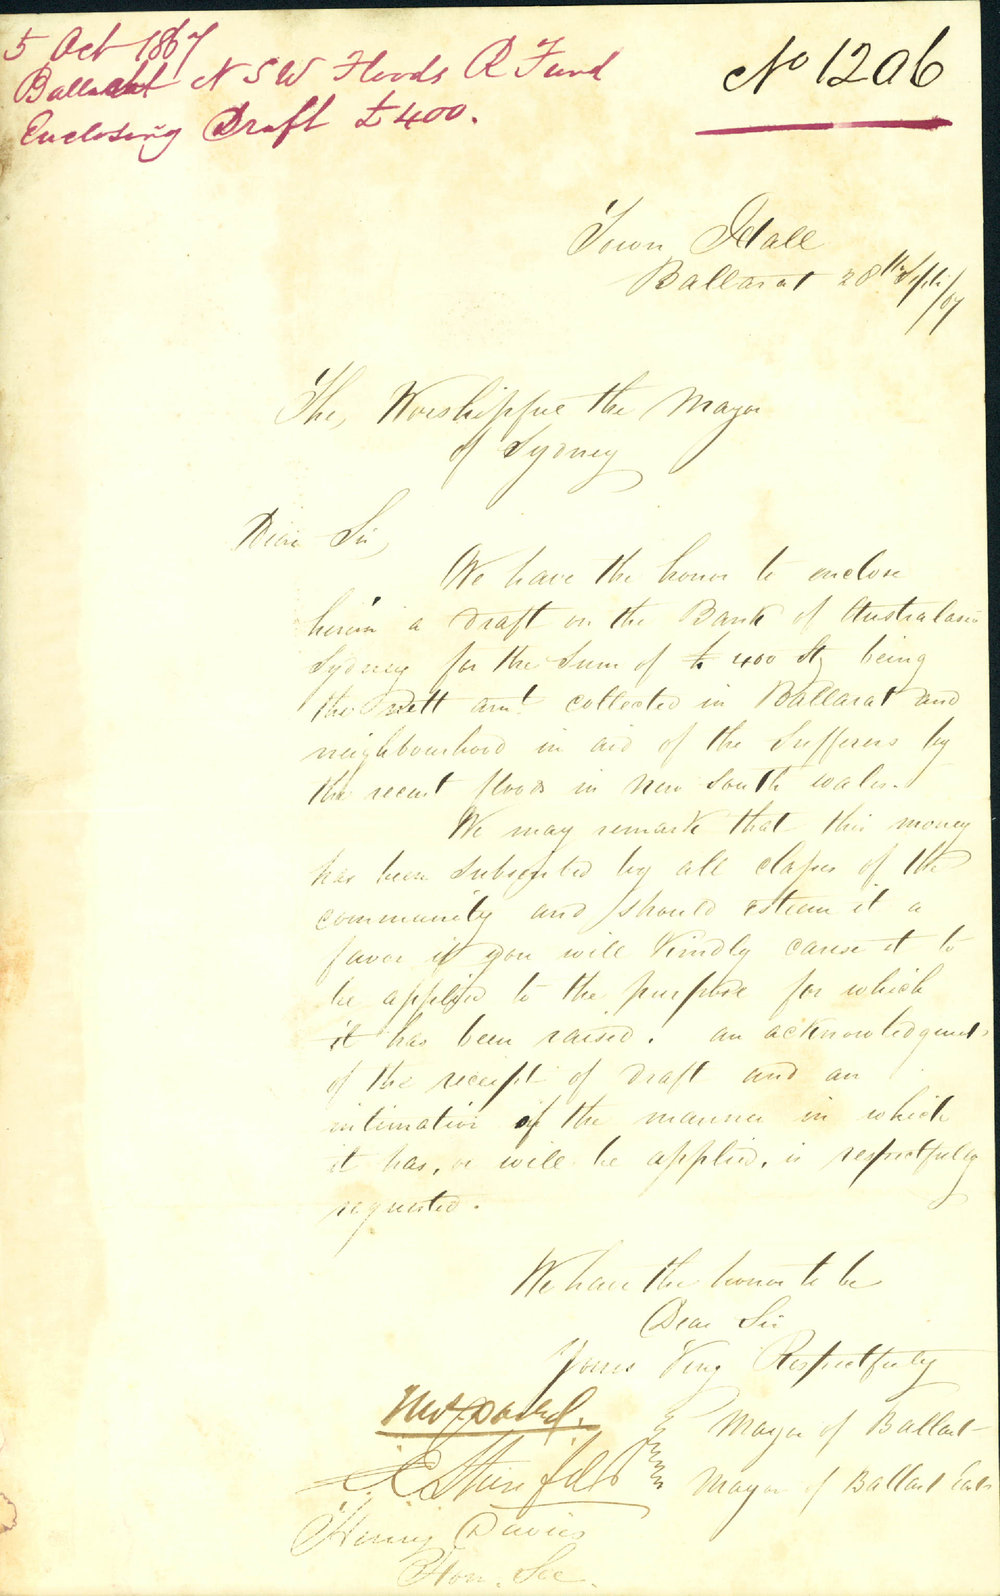 5 Oct 1867
Ballarat N S W Floods R Fund
Enclosing Draft £400.
No 1206
Town Hall
Ballarat 28th Sept/67
The, Worshipful the Mayor
of Sydney
Dear Sir,
We have the honor to enclose
herein a draft on the Bank of Australasia
Sydney for the Sum of £400 Stg being
the nett amt collected in Ballarat and
neighbourhood in aid of the Sufferers by
the recent floods in New South Wales.
We may remark that this money
has been subscribed by all classes of the
community and should esteem it a
favor if you will kindly cause it to
be applied to the purpose for which
it has been raised. an acknowledgment
of the receipt of draft and an
intimation of the manner in which
it has, or will be applied, is respectfully
requested.
We have the honor to be
Dear Sir
Yours Very Respectfully
Mayor of Ballarat
Mayor of Ballarat East
Henry Davies
Hon. Sec.